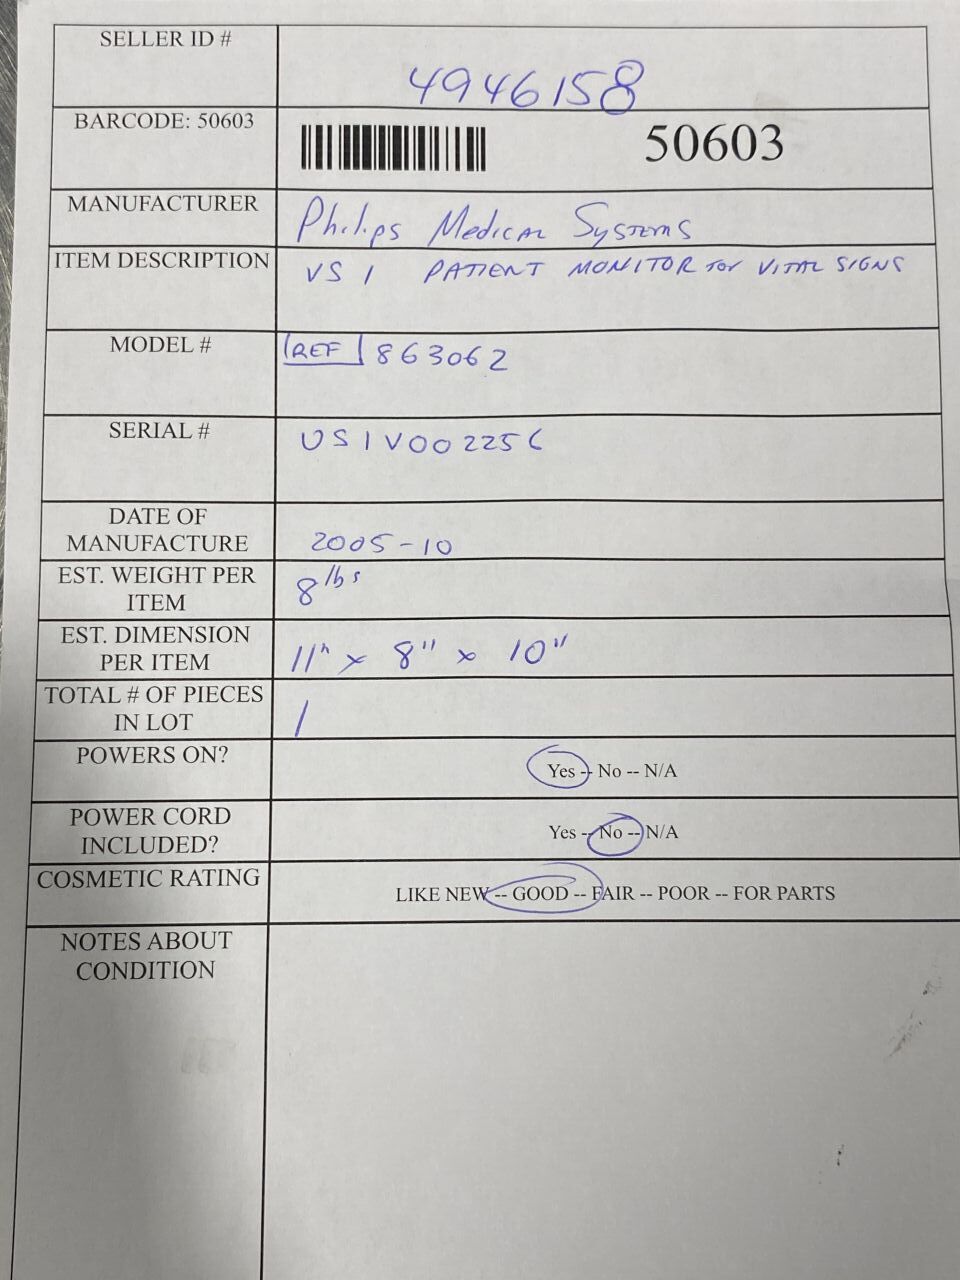 SELLER ID #
4946158
BARCODE: 50603
50603
MANUFACTURER
Philips Medical Systems
ITEM DESCRIPTION
VS 1 PATIENT MONITOR for VITAL SIGNS
MODEL #
REF 863062
SERIAL #
US1V002256
DATE OF
MANUFACTURE
2005-10
EST. WEIGHT PER
ITEM
8 lbs
EST. DIMENSION
PER ITEM
11" x 8" x 10"
TOTAL # OF PIECES
IN LOT
1
POWERS ON?
Yes -- No -- N/A
POWER CORD
INCLUDED?
Yes -- No -- N/A
COSMETIC RATING
LIKE NEW -- GOOD -- FAIR -- POOR -- FOR PARTS
NOTES ABOUT
CONDITION